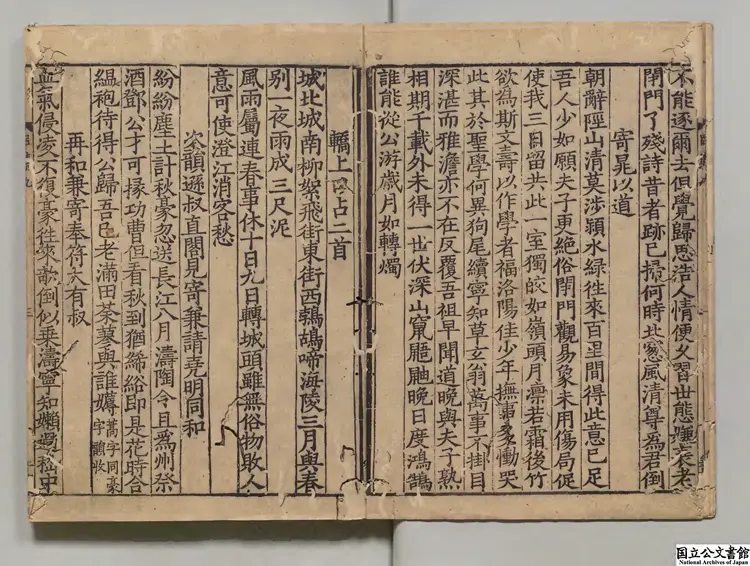 不能逐爾去但覺歸思浩人情便久習世態
閉門了殘詩昔者跡已掃何時北窓風清尊為君倒
寄晁以道
朝辭陘山清莫涉潁水緑徃來百里間得此意已足
吾人少如願夫子更絶俗閉門觀易象未用傷局促
使我三日留共此一室獨皎如嶺頭月凛若霜後竹
欲為斯文壽以作學者福洛陽佳少年撫事象慟哭
此其於聖學何異狗尾續寧知草玄翁萬事不掛目
深湛而雅澹亦不在反覆吾祖早聞道晚與夫子熟
相期千載外未得一丗伏深山窠鼯鼬晚日度鴻鵠
誰能從公游歲月如轉燭
轎上口占二首
城北城南柳絮飛街東街西鵓鴣啼海陵三月與春
別一夜雨成三尺泥
風雨屬連春事休十日九日轉城頭雖無俗物敗人
意可使澄江消客愁
次韻遜叔直閣見寄兼請堯明同和
紛紛塵土計秋豪忽送長江八月濤陶令且為州祭
酒鄧公才可掾功曹但看秋到猶絺綌即是花時合
緼袍待得公歸吾已老滿田荼蓼與誰薅
再和兼寄奉符六有叔
血氣侵凌不須豪徃來歌倒似乗濤寧知嬾
国立公文書館
National Archives of Japan